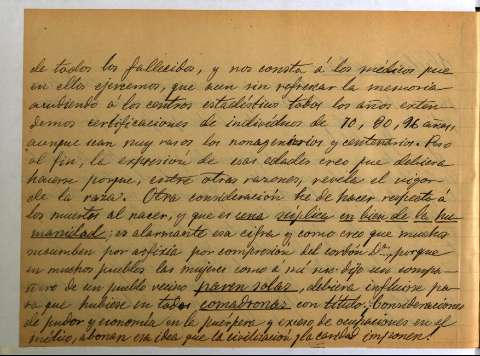 de todos los fallecidos, y nos consta á los médicos que
en ellos ejercemos, que aun sin refrescar la memoria
acudiendo á los centros estadísticos todos los años exten-
demos certificaciones de individuos de 70, 80, 96 años,
aunque sean muy raros los nonagenarios y centenarios. Pero
al fin, la expresión de esas edades creo que debiera
hacerse porque, entre otras razones, revela el vigor
de la raza. Otra consideración he de hacer respecto á
los muertos al nacer, y que es una súplica en bien de la hu-
manidad; es alarmante esa cifra y como creo que muchos
sucumben por asfixia por compresión del cordón &ª, porque
en muchos pueblos las mujeres como a mi me dijo un compa-
ñero de un pueblo vecino paren solas, debiera influirse pa-
ra que hubiese en todos comadronas con título; Consideraciones
de pudor y economía en la puérpera y exceso de ocupaciones en el
médico, abonan esa idea que la civilización y la caridad imponen.